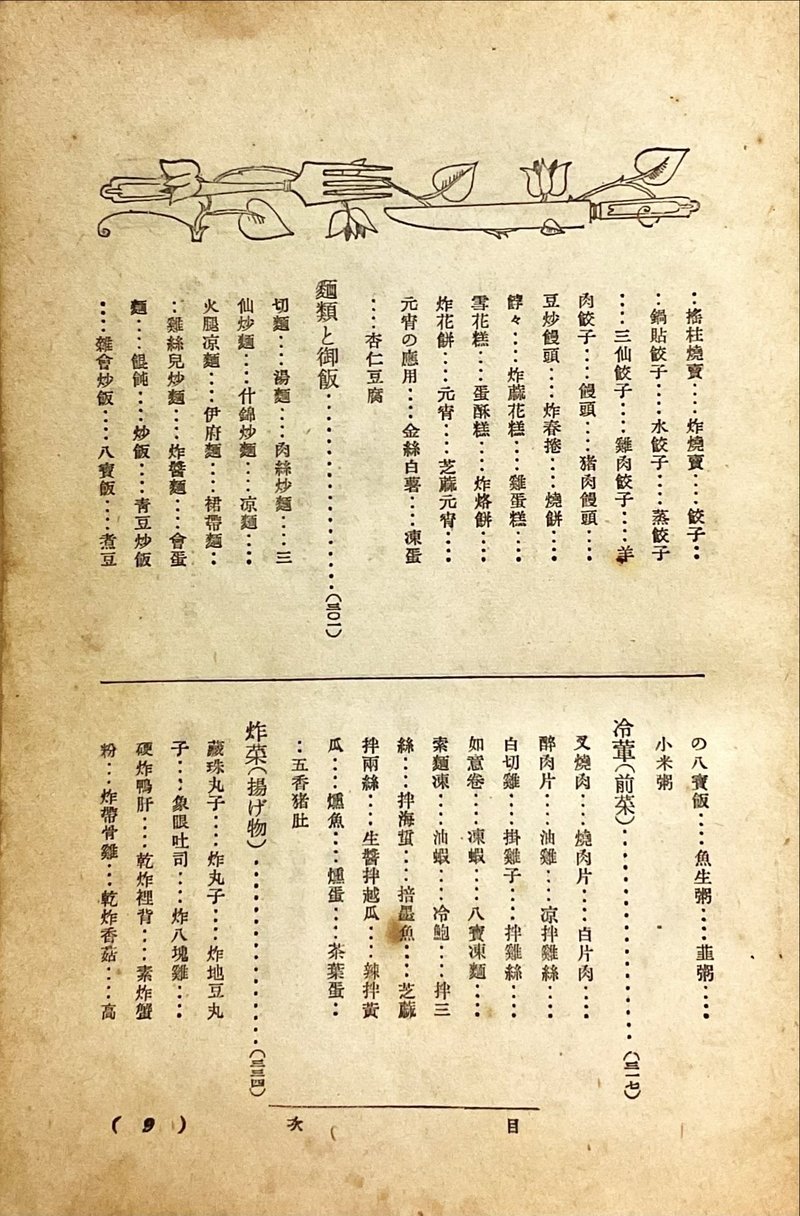 ‥搖柱燒賣‥‥炸燒賣‥‥餃子‥
‥鍋貼餃子‥‥水餃子‥‥蒸餃子
‥‥三仙餃子‥‥雞肉餃子‥‥羊
肉餃子‥‥饅頭‥‥猪肉饅頭‥‥
豆炒饅頭‥‥炸春捲‥‥燒餅‥‥
餑々‥‥炸蔴花糕‥‥雞蛋糕‥‥
雪花糕‥‥蛋酥糕‥‥炸烙餅‥‥
炸花餅‥‥元宵‥‥芝蔴元宵‥‥
元宵の應用‥‥金絲白薯‥‥凍蛋
‥‥杏仁豆腐
麵類と御飯‥‥‥‥‥‥‥‥(三〇一)
切麵‥‥湯麵‥‥肉絲炒麵‥‥三
仙炒麵‥‥什錦炒麵‥‥凉麵‥‥
火腿凉麵‥‥伊府麵‥‥裙帶麵‥
‥雞絲兒炒麵‥‥炸醬麵‥‥會蛋
麵‥‥餛飩‥‥炒飯‥‥靑豆炒飯
‥‥雜會炒飯‥‥八寶飯‥‥煮豆
の八寶飯‥‥魚生粥‥‥韮粥‥‥
小米粥
冷葷(前菜)‥‥‥‥‥‥‥‥(三一七)
叉燒肉‥‥燒肉片‥‥白片肉‥‥
醉肉片‥‥油雞‥‥凉拌雞絲‥‥
白切雞‥‥掛雞子‥‥拌雞絲‥‥
如意卷‥‥凍蝦‥‥八寶凍麵‥‥
索麵凍‥‥油蝦‥‥冷鮑‥‥拌三
絲‥‥拌海蜇‥‥掊墨魚‥‥芝蔴
拌兩絲‥‥生醬拌越瓜‥‥辣拌黃
瓜‥‥燻魚‥‥燻蛋‥‥茶葉蛋‥
‥五香猪肚
炸菜(揚げ物)‥‥‥‥‥‥‥‥(三三四)
藏珠丸子‥‥炸丸子‥‥炸地豆丸
子‥‥象眼吐司‥‥炸八塊雞‥‥
硬炸鴨肝‥‥乾炸裡背‥‥素炸蟹
粉‥‥炸帶骨雞‥‥乾炸香菇‥‥高
目次
(9)